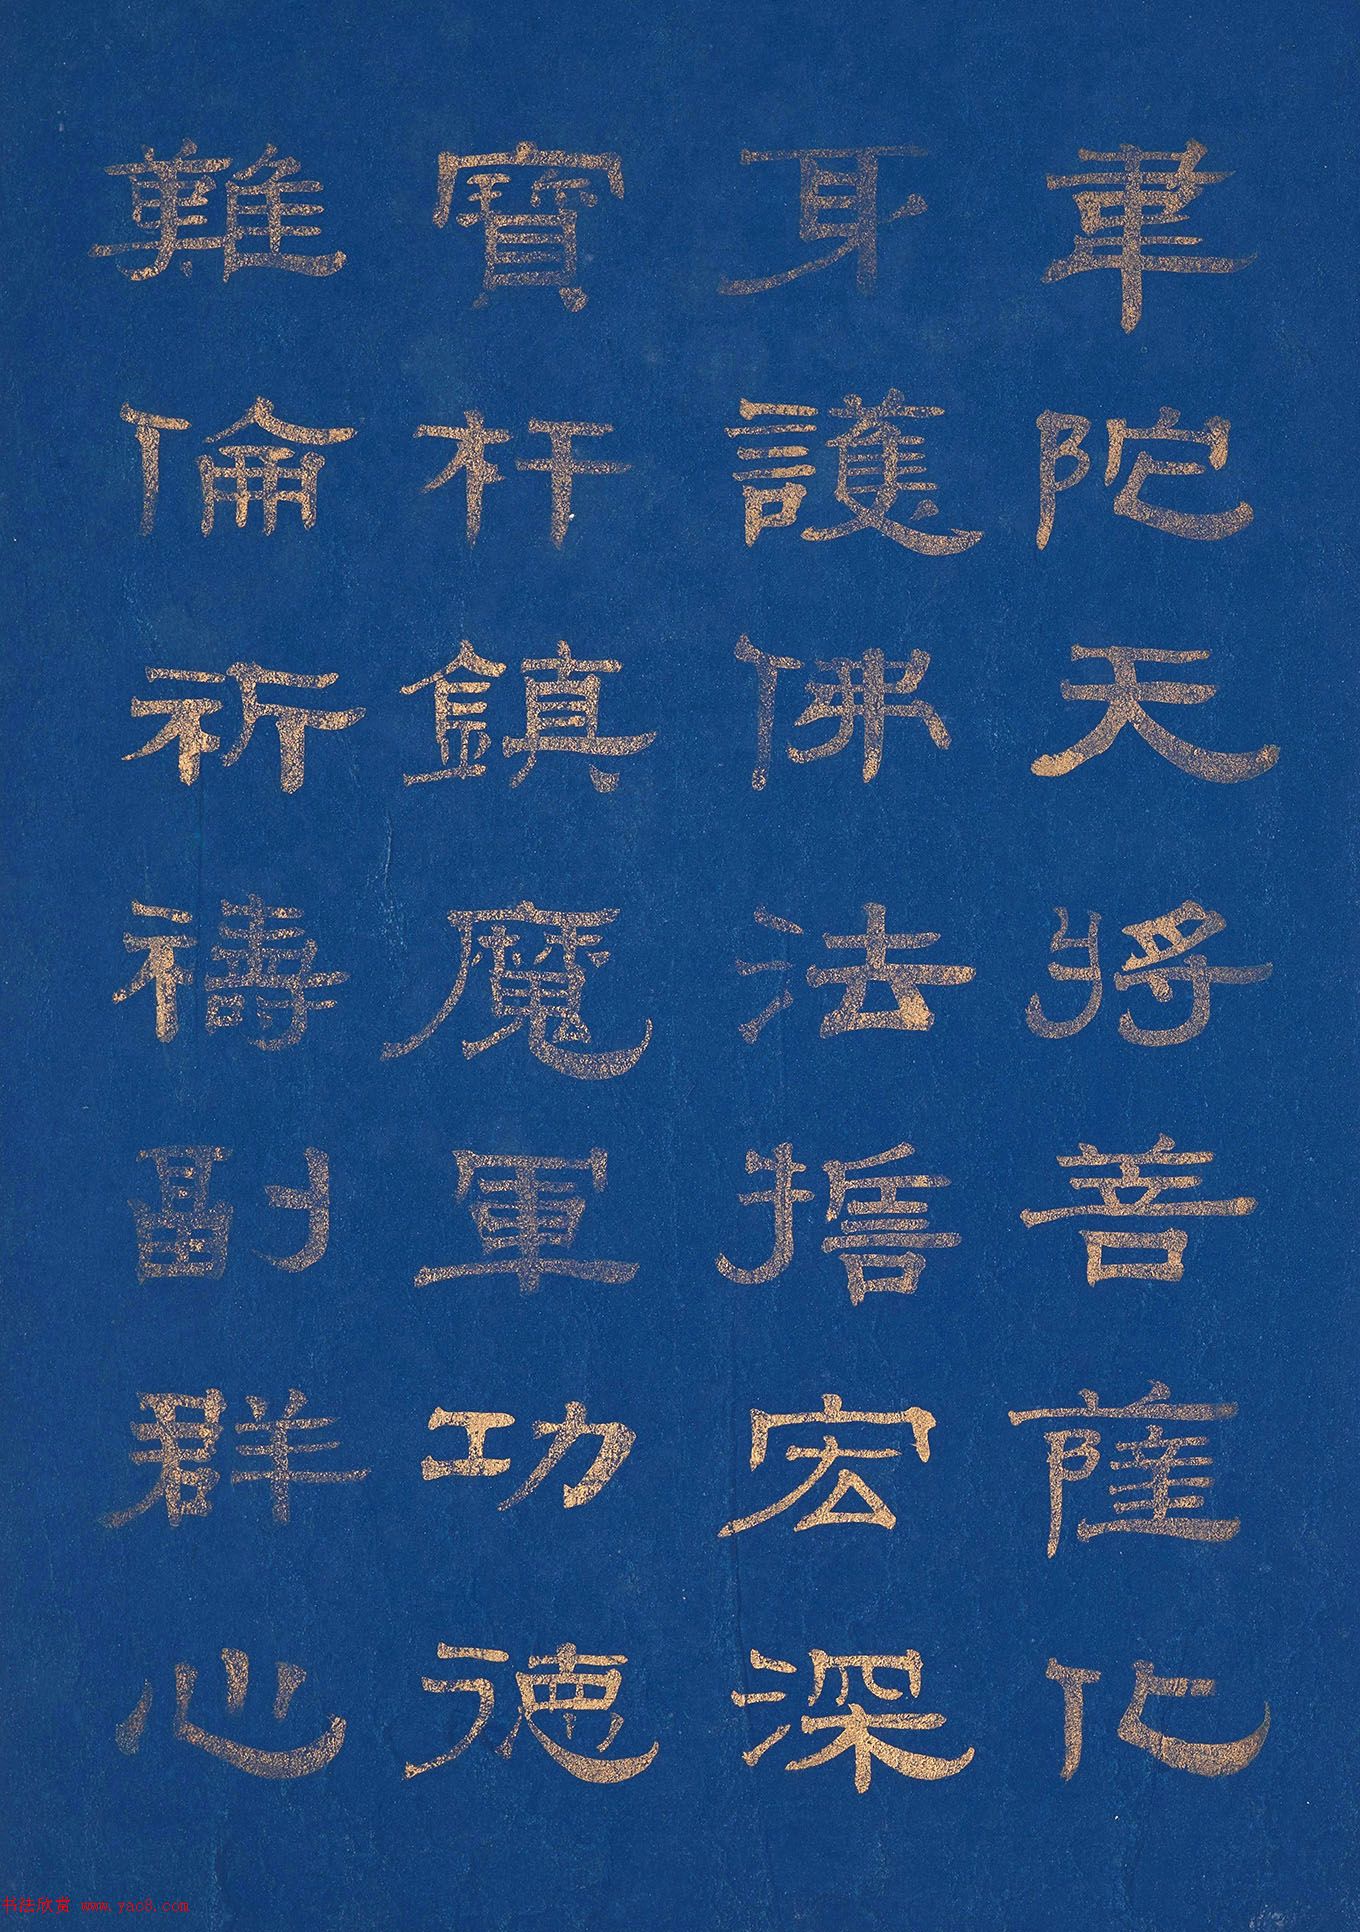 韋陀天將菩薩化
身護佛法擔宏深
寶杵鎮魔軍功德
難倫祈禱副群心
书法欣赏 www.yac8.com